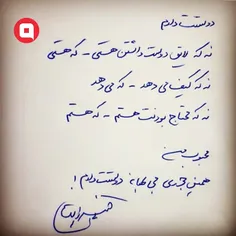 دوستت دارم
نه که لایق دوست داشتن هستی - که هستی
نه که کیف می دهد - که می دهد
نه که محتاج بودنت هستم - که هستم
محبوب من
همین جوری بی هوا دوستت دارم!